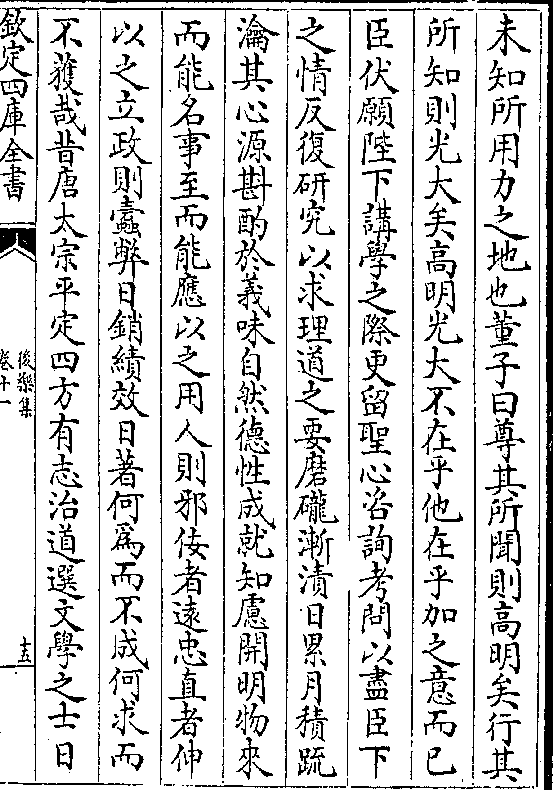 未知所用力之地也董子曰尊其所聞則高明矣行其
所知則光大矣高明光大不在乎他在乎加之意而已
臣伏願陛下講學之際更留聖心咨詢考問以盡臣下
之情反復研究以求理道之要磨礲漸漬日累月積疏
瀹其心源斟酌於義味自然德性成就知慮開明物來
而能名事至而能應以之用人則邪佞者遠忠直者伸
以之立政則蠧弊日銷績效日著何爲而不成何求而
不獲哉昔唐太宗平定四方有志治道選文學之士日
欽定四庫全書
後樂集
卷十一
十五